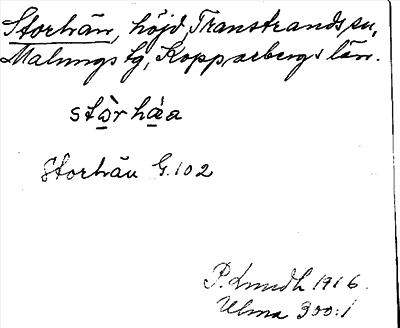 Storhån, höjd, Transtrands sn,
Malungs tg, Kopparbergs län.
stò̱rhá̱a
Storhån G.102
P. Lundh 1916.
Ulma 300:1